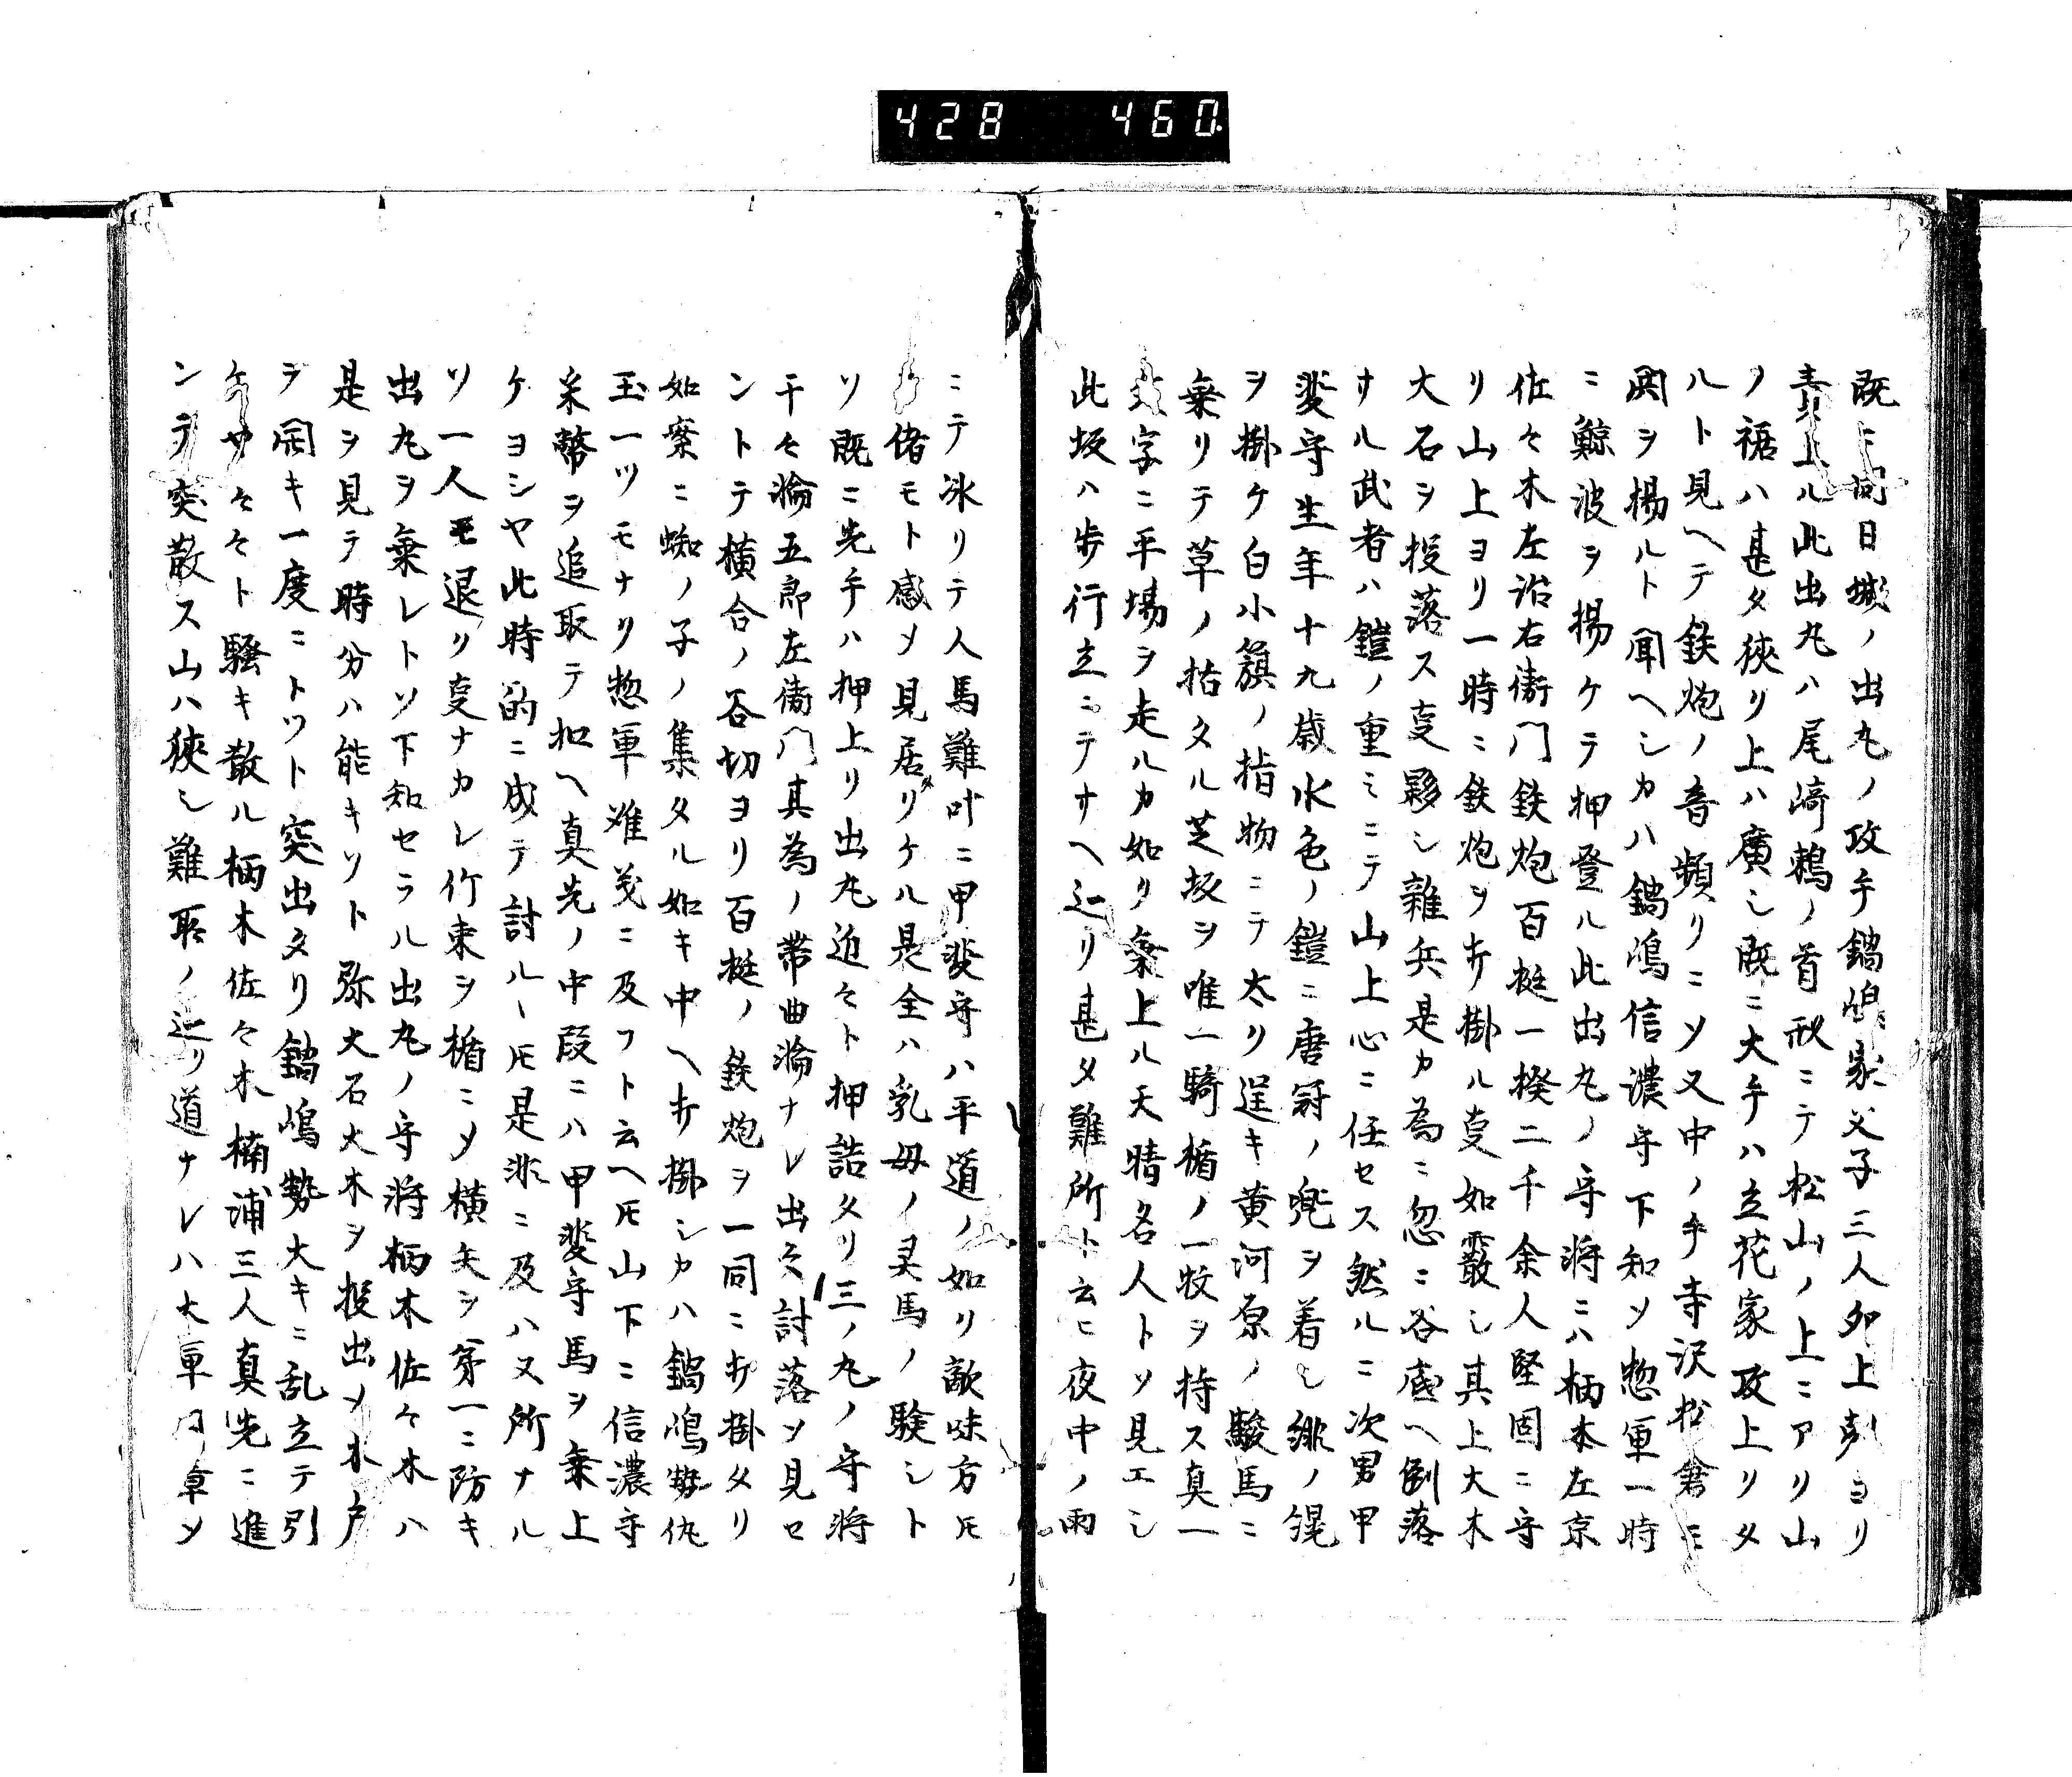 428 460
既ニ同日城ノ出丸ノ攻手鍋嶋家父子三人卯上刻ヨリ
責上ル此出丸ハ尾﨑鵜ノ首秋ニテ松山ノ上ニアリ山
ノ裾ハ甚タ狹リ上ハ廣シ既ニ大手ハ立花家攻上リタ
ルト見ヘテ鉄炮ノ音頻リニソ又中ノ手寺沢松倉ニ
閧ヲ揚ルト聞ヘシカハ鍋嶋信濃守下知ソ惣軍一時
ニ鯨波ヲ揚ケテ押登ル此出丸ノ守將ニハ柄本左京
佐々木左治右衛門鉄炮百挺一揆二千余人堅固ニ守
リ山上ヨリ一時ニ鉄炮ヲ打掛ル叓如霰シ其上大木
大石ヲ投落ス叓夥シ雜兵是カ為ニ忽ニ谷底ヘ倒落
サル武者ハ鎧ノ重ミニテ山上心ニ任セス然ルニ次男甲
斐守生年十九歳水色ノ鎧ニ唐冠ノ兜ヲ着シ緋ノ縨
ヲ掛ケ白小籏ノ指物ニテ太リ逞キ黄河原ノ駿馬ニ
乗リテ草ノ枯タル芝坂ヲ唯一騎楯ノ一枚ヲ持ス真一
文字ニ平場ヲ走ルカ如ク乗上ル天晴名人トソ見エシ
此坂ハ歩行立ニテサヘ辷リ甚タ難所ト云ヒ夜中ノ雨
ニテ氷リテ人馬難叶ニ甲斐守ハ平道ノ如リ敵味方㐂
偖モト感メ見居リケル是全ハ乳母ノ灵馬ノ験シト
ソ既ニ先手ハ押上リ出丸近々ト押詰タリ三ノ丸ノ守將
千々輪五郎左衛門其為ノ帯曲輪ナレ出々討落ソ見セ
ントテ横合ノ谷切ヨリ百挺ノ鉄炮ヲ一同ニ打掛タリ
如案ニ蜘ノ子ノ集タル如キ中ヘ打掛シカハ鍋嶋勢仇
玉一ツモナリ惣軍难茂ニ及フト云ヘ㐂山下ニ信濃守
采幣ヲ追取テ扣ヘ真先ノ中段ニハ甲斐守馬ヲ乗上
ケヨシヤ此時的ニ成テ討ル丨㐂是非ニ及ハ又所ナル
ソ一人モ退リ叓ナカレ竹束ヲ楯ニメ横矢ヲ第一ニ防キ
出丸ヲ乗レトソ下知セラル出丸ノ守將柄木佐々木ハ
是ヲ見テ時分ハ能キソト弥大石大木ヲ投出ソ木戸
ヲ開キ一度ニトツト突出タリ鍋嶋勢大キニ乱立テ引
ケヤ々々ト騒キ散ル柄木佐々木楠浦三人真先ニ進
ンテ突散ス山ハ狹シ難所ノ辷リ道ナレハ大軍円卓ソ